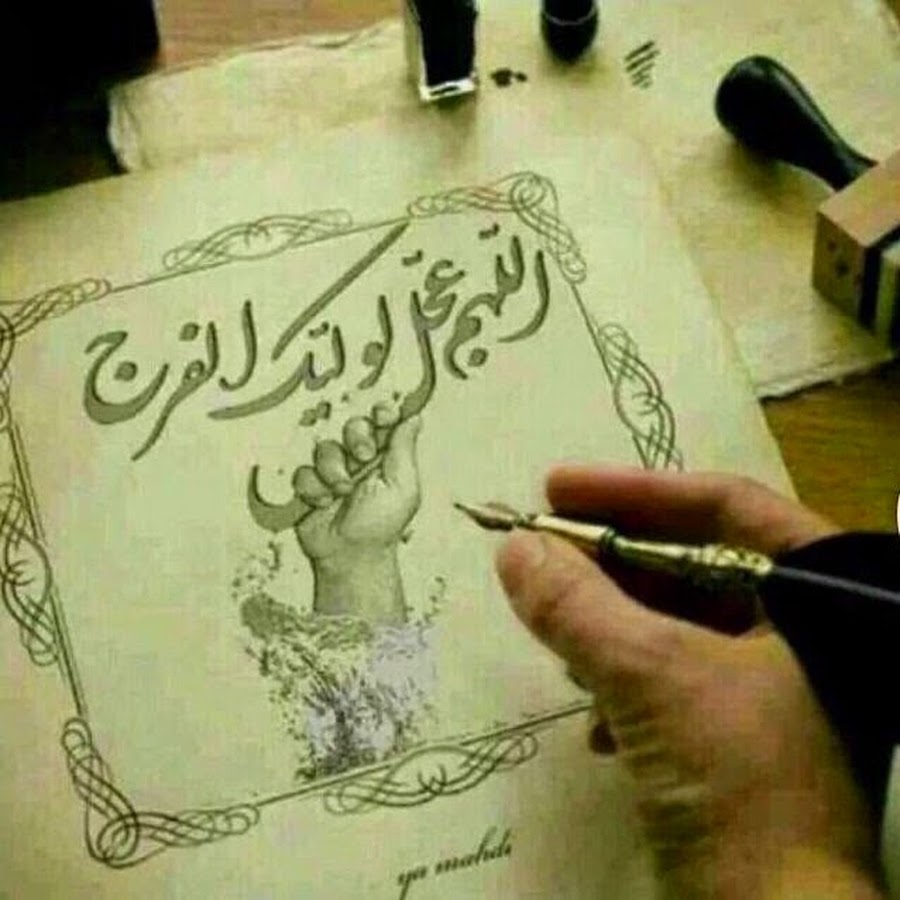 اللهم عجل لوليك الفرج
ya mahdi